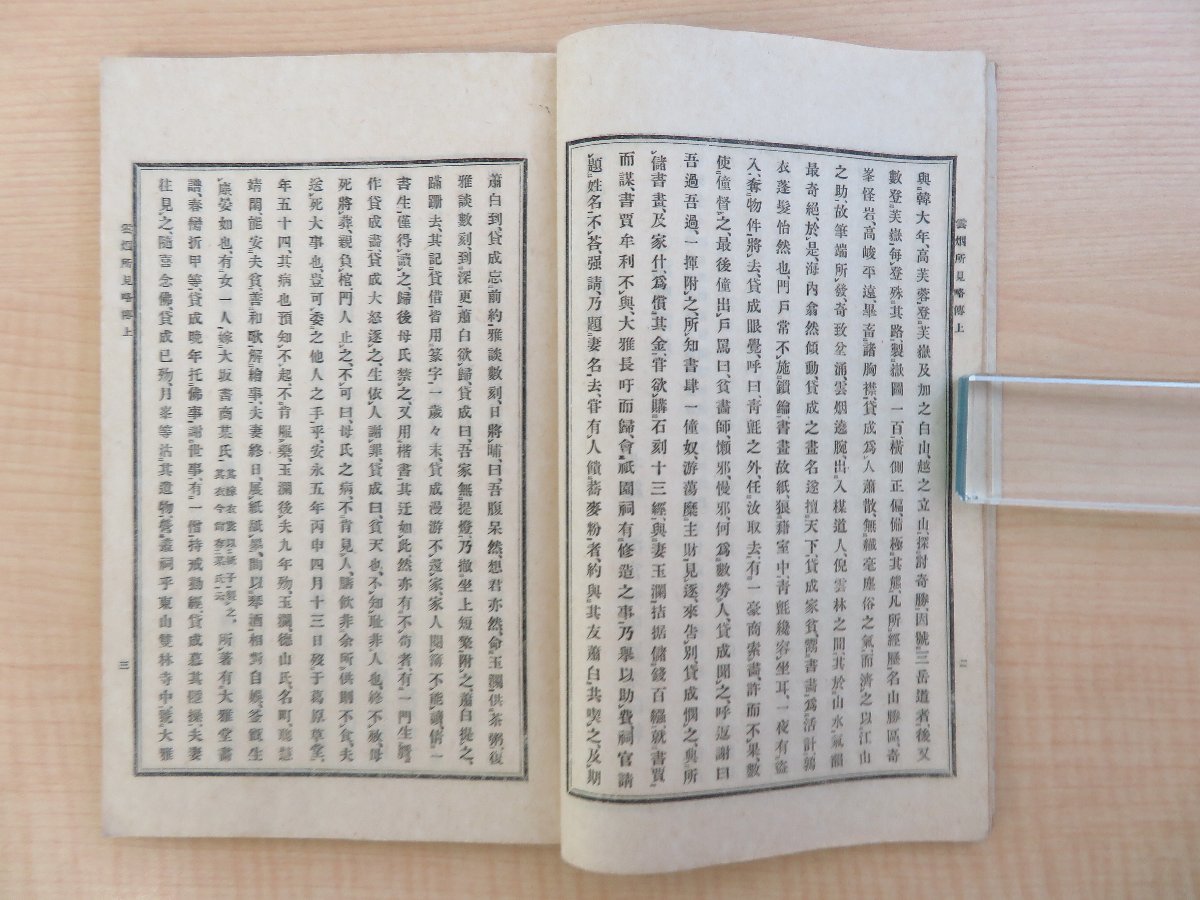 雲烟所見略傳上
二
與韓大年高芙蓉登芙嶽及加之白山越之立山探討奇勝因號三岳道者後又
數登芙嶽每登殊其路製嶽圖一百橫側正偏備極其態凡所經歷名山勝區奇
峯怪岩高峻平遠畢畜諸胸襟貸成爲人蕭散無纖毫塵俗之氣而濟之以江山
之助故筆端所發奇玫坌涌雲烟遶腕出入楳道人倪雲林之間其於山水氣韻
最奇絕於是海內翕然傾動貸成之畫名遂擅天下貸成家貧鬻書畫爲活計鶉
衣蓬髮怡然也門戶常不施鎖鑰書畫故紙狼藉室中靑氈纔容坐耳一夜有盜
入奪物件將去貸成眼覺呼曰靑氈之外任汝取去有一豪商索畫許而不果數
使僮督之最後僮出戶罵曰貧畫師懶邪慢邪何爲數勞人貸成聞之呼返謝曰
吾過吾過一揮附之所知書肆一僮奴游蕩糜主財見逐來吿別貸成憫之與所
儲書畫及家什爲償其金甞欲購石刻十三經與妻玉瀾拮据儲錢百緡就書賈
而謀書賈牟利不與大雅長吁而歸會祇園祠有修造之事乃擧以助費祠官請
題姓名不答强請乃題妻名去甞有人饋蕎麥粉者約與其友蕭白共喫之及期
蕭白到貸成忘前約雅談數刻日將晡曰吾腹呆然想君亦然命玉瀾供茶粥復
雅談數刻到深更蕭白欲歸貸成曰吾家無提燈乃撤坐上短檠附之蕭白提之
蹣跚去其記貸借皆用篆字一歲々末貸成漫游不還家家人閱簿不能讀倩一
書生僅得讀之歸後母氏禁之又用楷書其迂如此然亦有不苟者有一門生贋
作貸成畫貸成大怒逐之生依人謝罪貸成曰貧天也不知恥非人也終不赦母
死將葬親負棺門人止之不可曰母氏之病不肯見人膳飲非余所供則不食夫
送死大事也豈可委之他人之手乎安永五年丙申四月十三日歿于葛原草堂
年五十四其病也預知不起不肯服藥玉瀾後夫九年歿玉瀾德山氏名町聰慧
靖閑能安夫貧善和歌解繪事夫妻終日展紙舐墨間以琴酒相對自娛釜甑生
塵晏如也有女一人嫁大坂書商某氏所著有大雅堂畫
譜春巒折甲等貸成晚年托佛事謝世事有一僧持戒勤經貸成慕其德操夫妻
往見之隨喜念佛貸成已歿月峯等沽其遺物營叢祠乎東山雙林寺中號大雅
雲烟所見略傳上
三